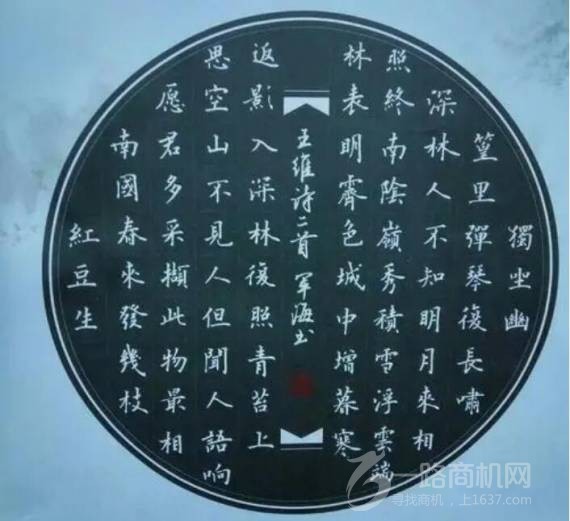 獨坐幽
篁里彈琴復長嘯
深林人不知明月來相
照終南陰嶺秀積雪浮雲端
林表明霽色城中增暮寒
王維诗二首 军海书
返影入深林復照青苔上
思空山不見人但聞人語响
愿君多采擷此物最相
南國春來發幾枝
紅豆生
一路商机网
寻找商机，上1637.com